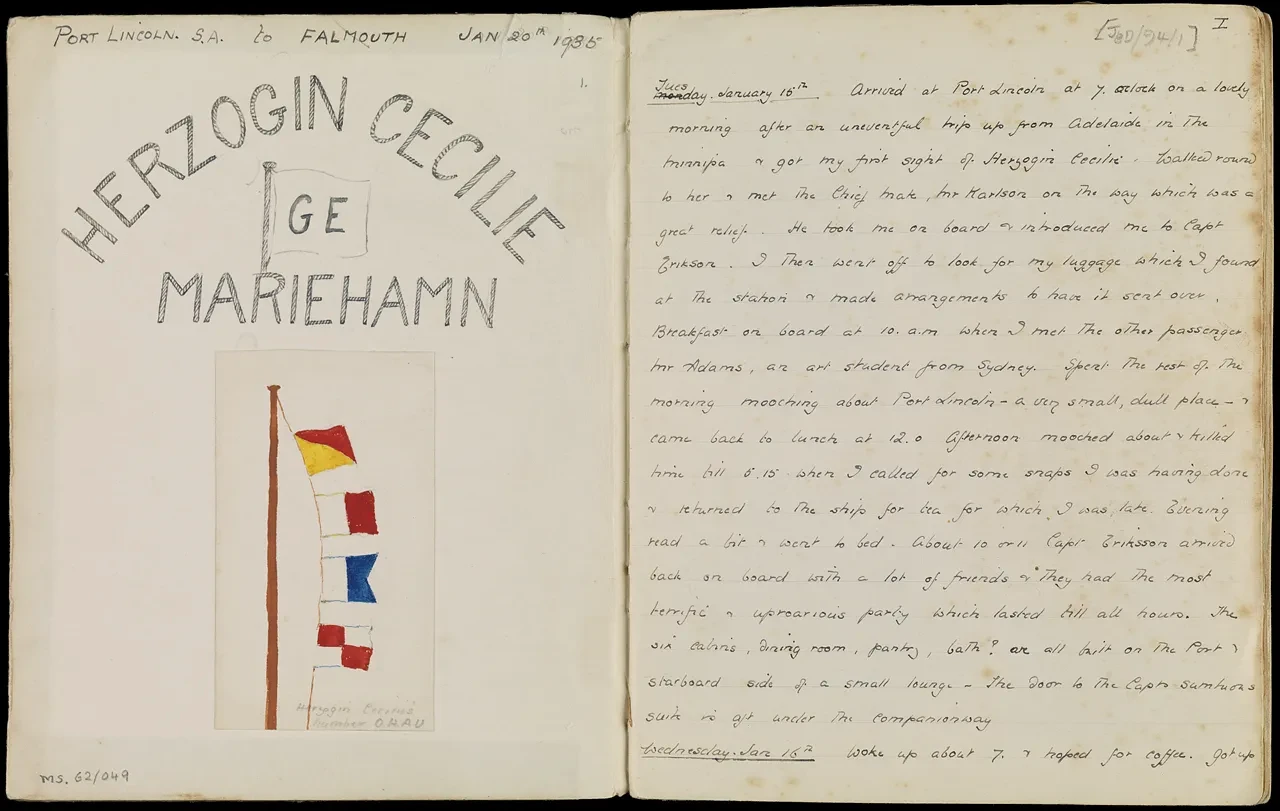 PORT LINCOLN. S.A. to FALMOUTH JAN 20th 1935
1.
HERZOGIN CECILIE
GE
MARIEHAMN
Herzogin Cecilie's
number O.H.A.U
MS. 62/049
[JOD/94/1] I
Tuesday. January 15th Arrived at Port Lincoln at 7. oclock on a lovely
morning after an uneventful trip up from Adelaide in The
Minnipa & got my first sight of Herzogin Cecilie. Walked round
to her & met The Chief mate, Mr Karlson on The way which was a
great relief. He took me on board & introduced me to Capt
Erikson. I Then went off to look for my luggage which I found
at The station & made arrangements to have it sent over.
Breakfast on board at 10. a.m when I met The other passenger
Mr Adams, an art student from Sydney. Spent The rest of The
morning mooching about Port Lincoln - a very small, dull place - &
came back to lunch at 12.0 Afternoon mooched about & killed
time till 5.15 when I called for some snaps I was having done
& returned to The ship for tea for which I was late. Evening
read a bit & went to bed. About 10 or 11 Capt Eriksson arrived
back on board with a lot of friends & They had The most
terrific & uproarious party which lasted till all hours. The
six cabins, dining room, pantry, bath? are all built on The Port &
starboard side of a small lounge - The door to The Capts sumtuous
suite is aft under The companionway
Wednesday. Jan 16th Woke up about 7. & hoped for coffee. Got up